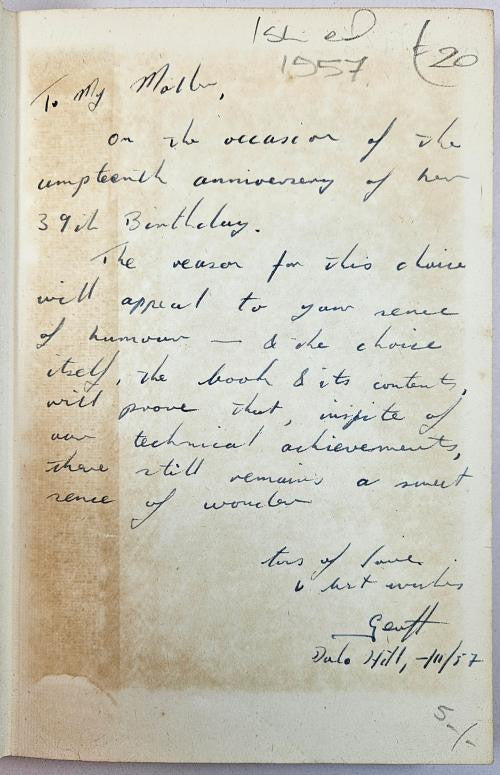 1st ed
1957
£20
To My Mother,
On the occasion of the
umpteenth anniversary of her
39th Birthday.
The reason for this choice
will appeal to your sence
of humour — & the choice
itself, the book & its contents,
will prove that, inspite of
our technical achievements,
there still remains a sweet
sence of wonder
tons of love
& best wishes
Geoff
Hill, -/11/57
5-/-